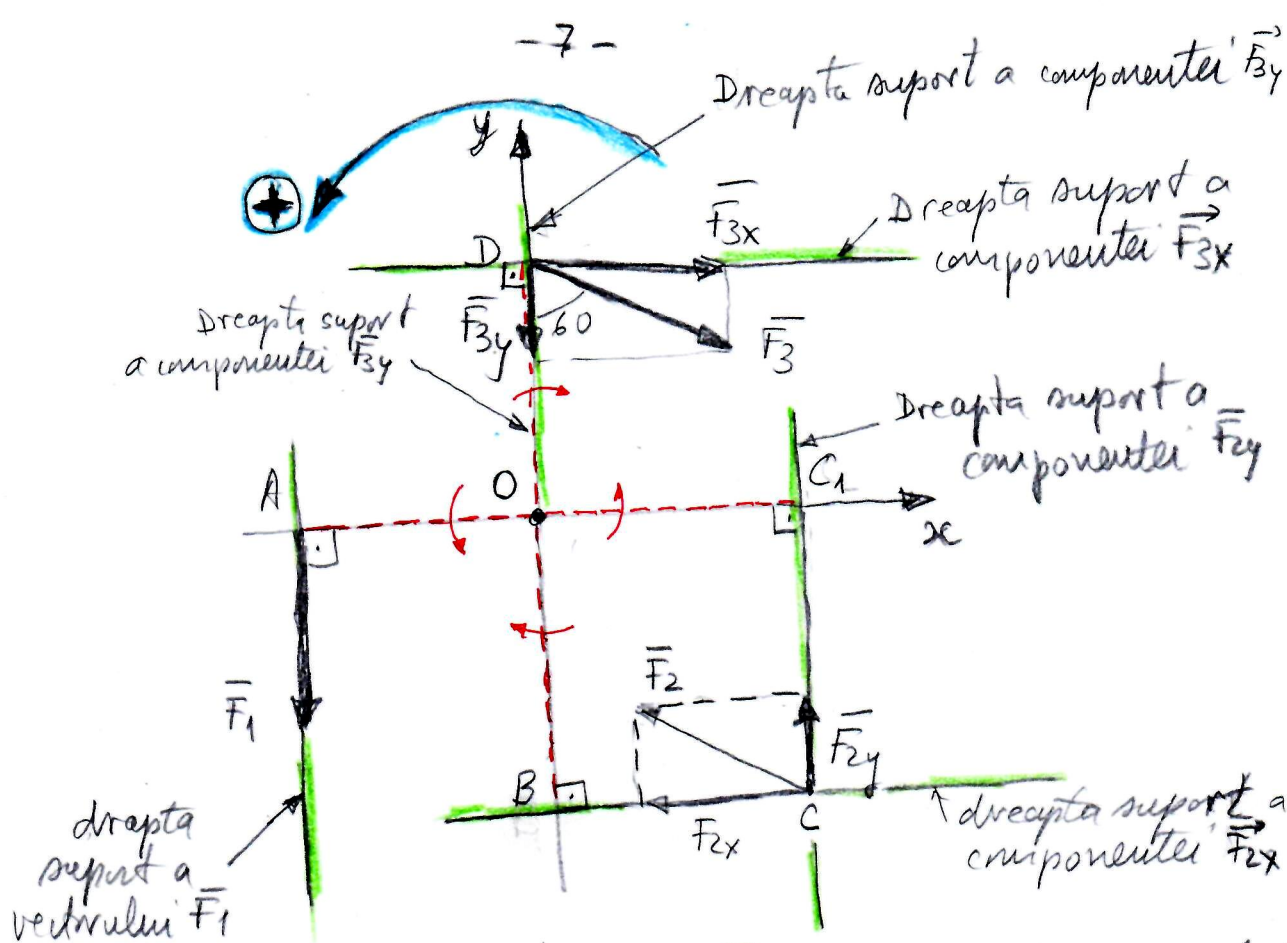 - 7 -
Dreapta suport a componentei F⃗3y
y
+
F̅3x
Dreapta suport a
componentei F⃗3x
D
Dreapta suport
a componentei F̅3y
F̅3y
60
F̅3
Dreapta suport a
componentei F̅2y
A
O
C1
x
F̅1
F̅2
F̅2y
B
F2x
C
drapta
suport a
vectorului F̅1
dreapta suport a
componentei F⃗2x